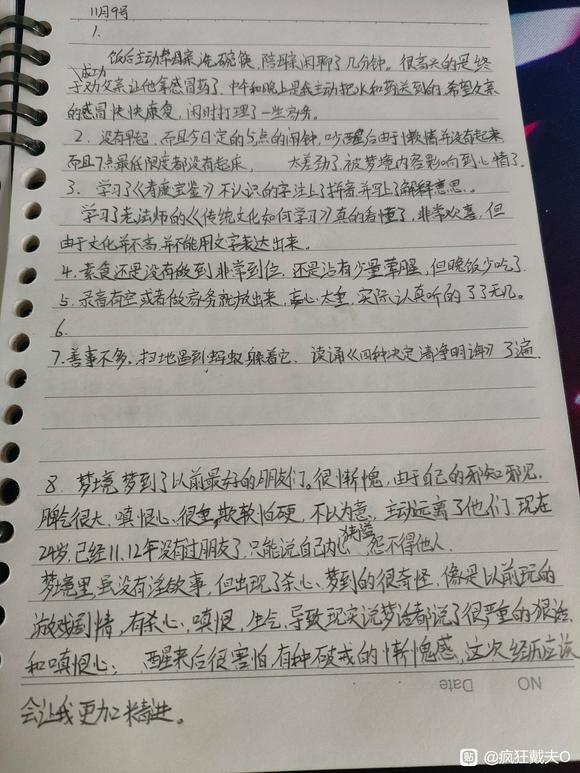 11月9号
1.
饭后主动帮母亲洗碗筷,陪母亲闲聊了几分钟。很高兴的是终
成功
于劝父亲让他拿感冒药了,中午和晚上是我主动把水和药送到的,希望父亲
的感冒快快康复,闲时打理了一些家务。
2、没有早起,而且今日定的5点的闹钟,吵醒后由于懒惰并没有起来,
而且7点最低限度都没有起床, 太差劲了,被梦境内容影响到心情了。
3、学习了《寿康宝鉴》不认识的字注上了拼音,并写上了解释意思。
学习了老法师的《传统文化如何学习》真的看懂了,非常欢喜,但
由于文化并不高,并不能用文字表达出来。
4、素食还是没有做到非常到位,还是沾有少量荤腥,但晚饭少吃了
5、录音有空或者做家务就放出来,贪心太重,实际认真听的了了无几。
6.
7、善事不多,扫地遇到蚂蚁躲着它,读诵《四种决定清净明诲》了遍
8、梦境,梦到了以前最好的朋友们。很惭愧,由于自己的邪知邪见,
脾气很大,嗔恨心,很重,欺软怕硬,不以为意,主动远离了他们,现在
狭隘
24岁,已经11、12年没有过朋友了,只能说自己内心 怨不得他人。
梦境里,虽没有淫欲事,但出现了杀心、梦到的很奇怪,像是以前玩的
游戏剧情,有杀心、嗔恨,生气,导致现实说梦话都说了很严重的狠话,
和嗔恨心; 醒来后很害怕,有种破戒的惭愧感,这次经历应该
会让我更加精进。
NO
Date
贴 @疯狂戴夫O